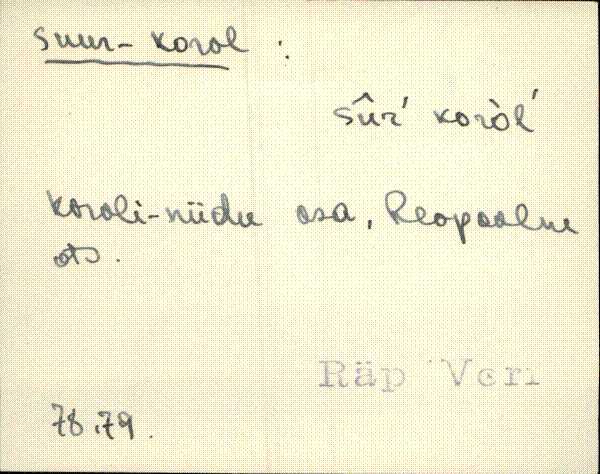 Suur-Korol :
sûŕ koròĺ
Koroli-niidu osa, Reopoolne
ots.
Räp Veri
78.79.